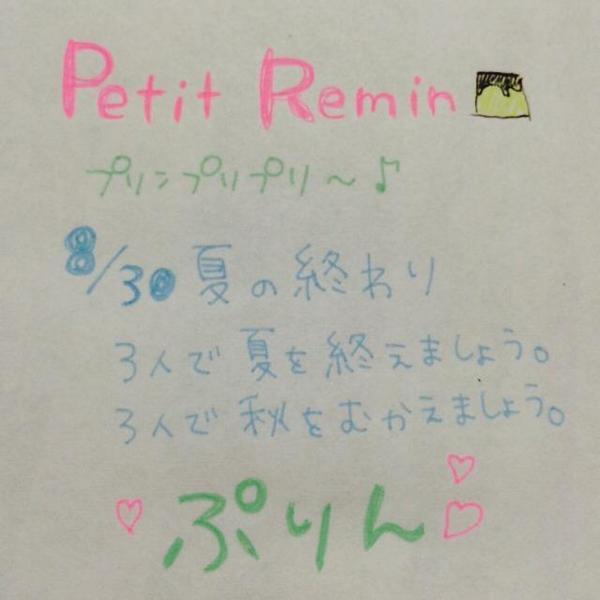 Petit Remin
プリンプリプリ〜♪
8/30 夏の終わり
3人で夏を終えましょう。
3人で秋をむかえましょう。
ぷりん